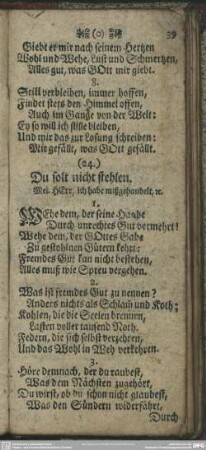 (o) 39
Giebt er mir nach seinem Hertzen
Wohl und Wehe, Lust und Schmertzen,
Alles gut, was GOtt mir giebt.
8.
Still verbleiben, immer hoffen,
Findet stets den Himmel offen,
Auch im Gantze von der Welt:
Ey so will ich stille bleiben,
Und mir das zur Losung schreiben:
Mir gefällt, was GOtt gefällt.
(24.)
Du solt nicht stehlen.
Mel. HErr, ich habe mißgehandelt, ec.
1.
WEhe dem, der seine Haabe
Durch unrechtes Gut vermehrt!
Wehe dem, der GOttes Gabe
Zu gestohlnen Gütern kehrt:
Fremdes Gut kan nicht bestehen,
Alles muß wie Spreu vergehen.
2.
Was ist fremdes Gut zu nennen?
Anders nichts als Schlam und Koth;
Kohlen, die die Seelen brennen,
Lasten voller tausend Noth.
Federn, die sich selbst verzehren,
Und das Wohl in Weh verkehren.
3.
Höre demnach, der du raubest,
Was dem Nächsten zugehört,
Du wirst, ob du schon nicht glaubest,
Was den Sündern widerfährt,
Durch